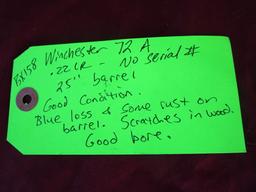 BX158
Winchester 72 A
.22LR - No Serial #
25" barrel
Good Condition.
Blue loss & Some rust on
barrel. Scratches in wood.
Good bore.